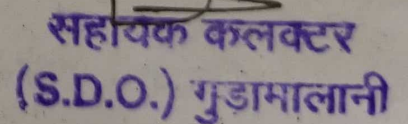 सहायक कलक्टर
(S.D.O.) गुडामालानी